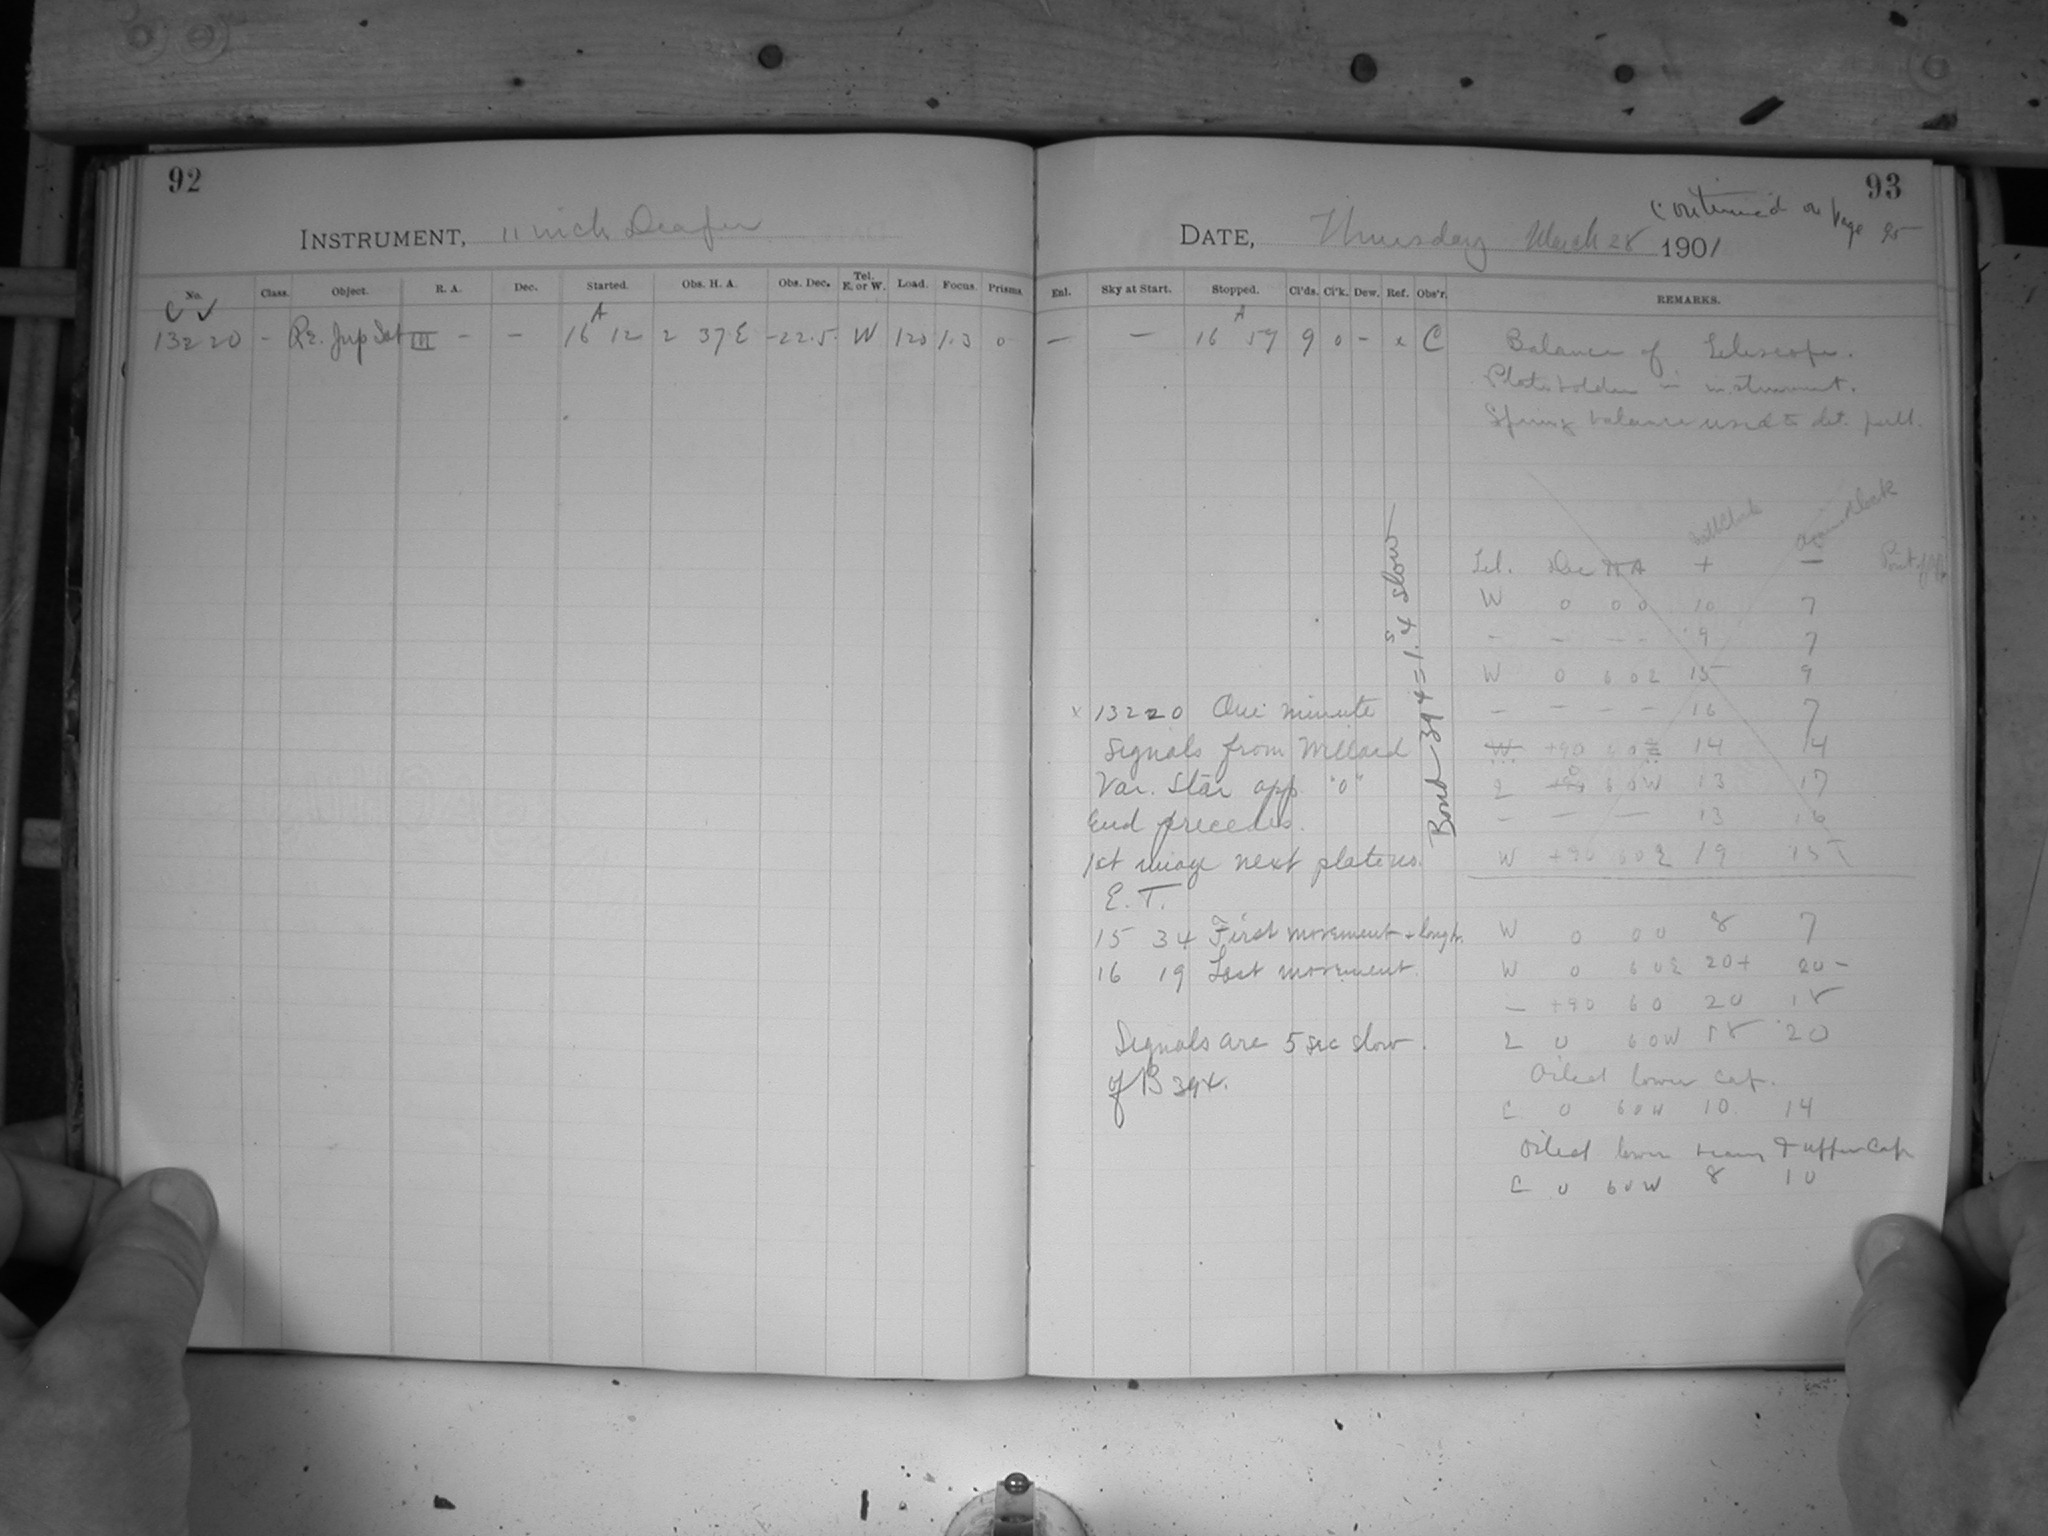 92
INSTRUMENT, 11 inch Draper
No. Class. Object. R. A. Dec. Started. Obs. H. A. Obs. Dec. Tel. E. or W. Load. Focus. Prisms.
13220 - Jup Sat III - - 16 12 2 37 E -22.5 W 120 1.3 0
93
Continued on Page 95
DATE, Thursday March 28 1901
Enl. Sky at Start. Stopped. Cl'ds. Cl'k. Dew. Ref. Obs'r. REMARKS.
- - 16 59 9 0 - x C
Balance of Telescope.
Plateholder in instrument.
Spring balance used to det. pull.
Tel. Dec HA + -
W 0 0 0 10 7
- - - - 9 7
W 0 60E 15 9
- - - - 16 7
W +90 60E 14 14
E 60W 13 17
- - - 13 16
W +90 60E 19 15
W 0 00 8 7
W 0 60E 20+ 20-
- +90 60 20 18
E 0 60W 18 20
Oiled lower cap.
E 0 60W 10 14
Oiled lower & upper cap
E 0 60W 8 10
x 13220 One minute
signals from Willard
Var. Star opp "0"
End precedes.
1st image next platens.
E. T.
15 34 First movement
16 19 Last movement.
Signals are 5 sec slow
of B 394.
Bond 394 = 1.s4 slow